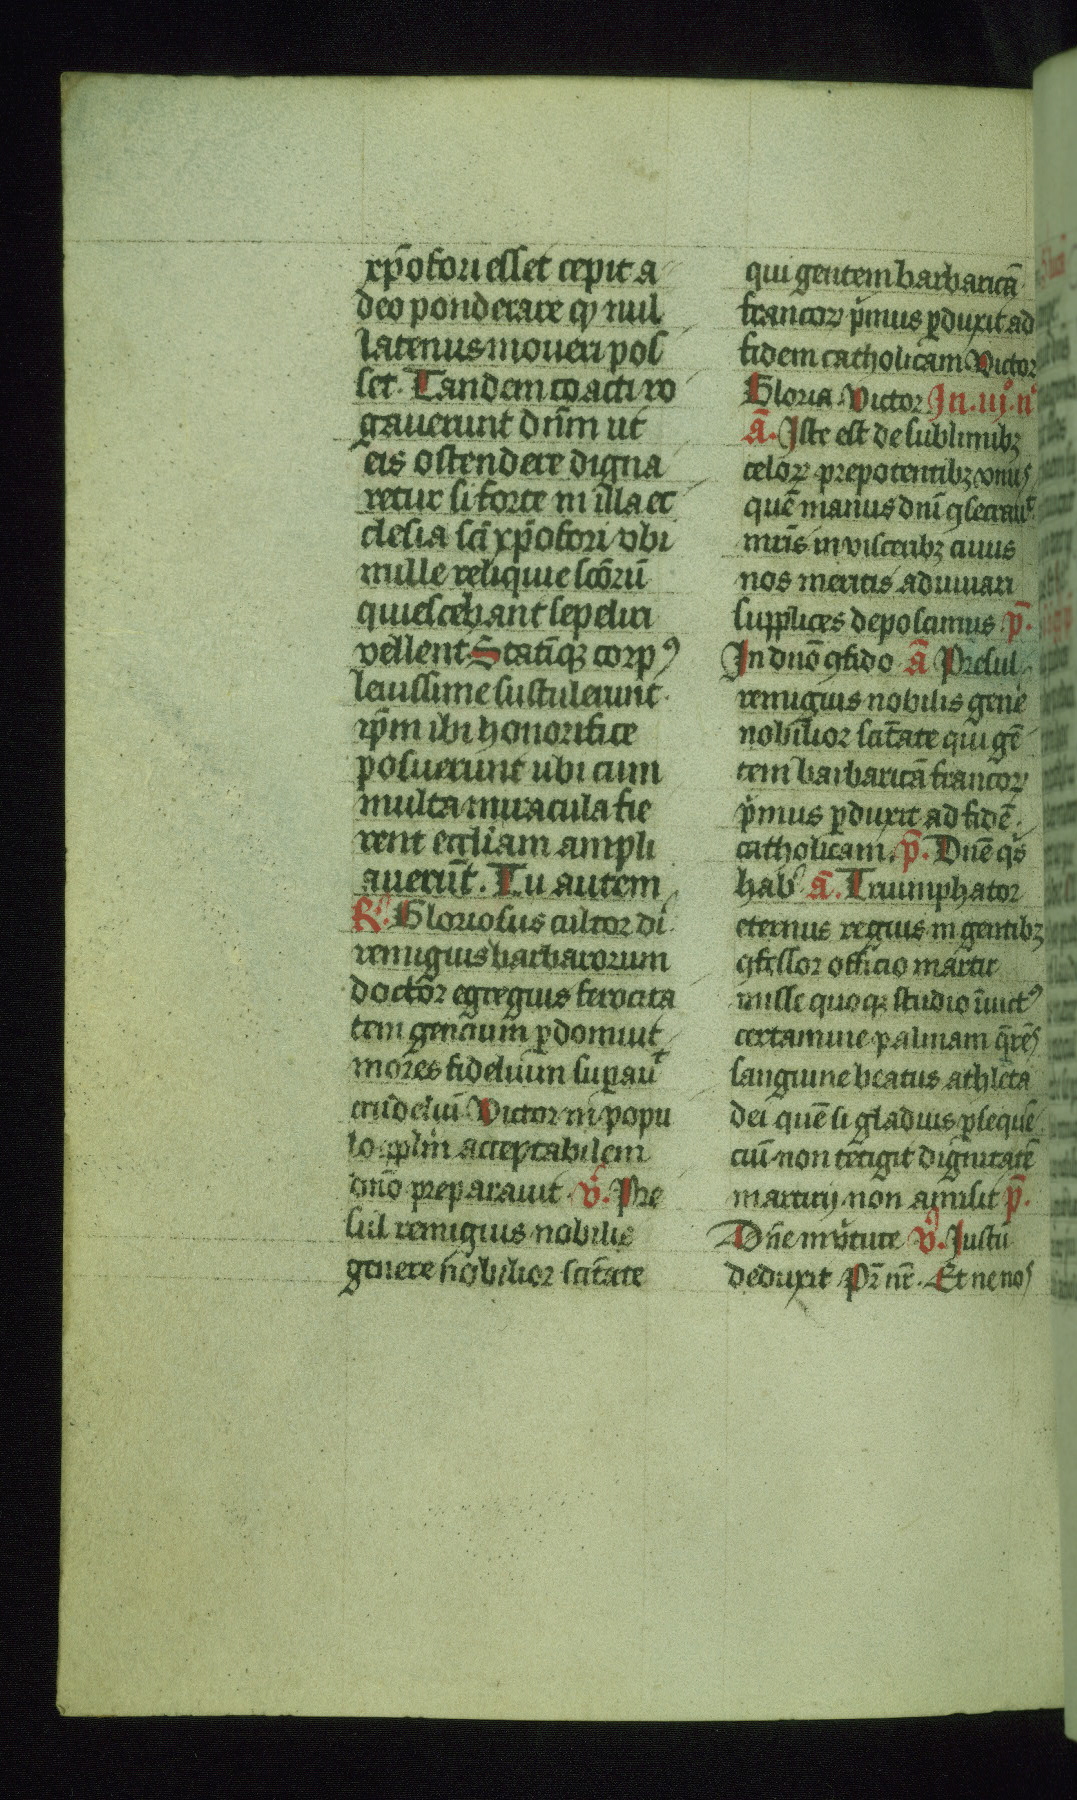 xp̄ofori esset cepit a
deo ponderare q nul
latenus moueri pos
set. Tandem coacti ro
gauerunt dn̄m ut
eis ostendere digna
retur si forte in illa ec
clesia sc̄i xp̄ofori vbi
mille reliquie sc̄orū
quiescebant sepeliri
vellent Statīqꝫ corpꝰ
leuissime sustulerunt.
ip̄m ibi honorifice
posuerunt ubi cum
multa miracula fie
rent eccl̄iam ampli
auerūt. Tu autem
℟. Gloriosus cultor di
remigius barbarorum
doctor egregius ferocita
tem gencium ꝑdomuit
mores fideliūm suꝑauᵗ
crudeliū Victor in popu
lo ꝯpl̄m acceptabilem
dn̄o preparauit ℣. Pre
sul remigius nobilis
genere nobilior sc̄itate
qui gentem barbaricā
francoꝝ pͥmus ꝑduxit ad
fidem catholicam Victor
Gloria Victor In .iij.º n.º
ā. Iste est de sublimibꝫ
celoꝝ prepotentibꝫ vnus
quē manus dn̄i ꝯsecrauᵗ
mr̄is in visceribꝫ cuius
nos meritis adiuuari
supplices deposcimus p̄.
In dn̄o ꝯfido ā Presul
remigius nobilis gene
nobilior sc̄itate qui gē
tem barbaricā francoꝝ
pͥmus ꝑduxit ad fidē
catholicam. p̄. Dn̄e qͥs
hab ā. Triumphator
eternus regius in gentibꝫ
ꝯfessor officio martir
nisse quoqꝫ studio īuictꝰ
certamine palmam q̄rēs
sanguine beatus athleta
dei quē si gladius ꝑseque
ciū non tētigit dignitatē
martirij non amisit p̄.
Dn̄e in vͥtute ℣. Iustū
deduxit Pr̄ nr̄. Et ne nos